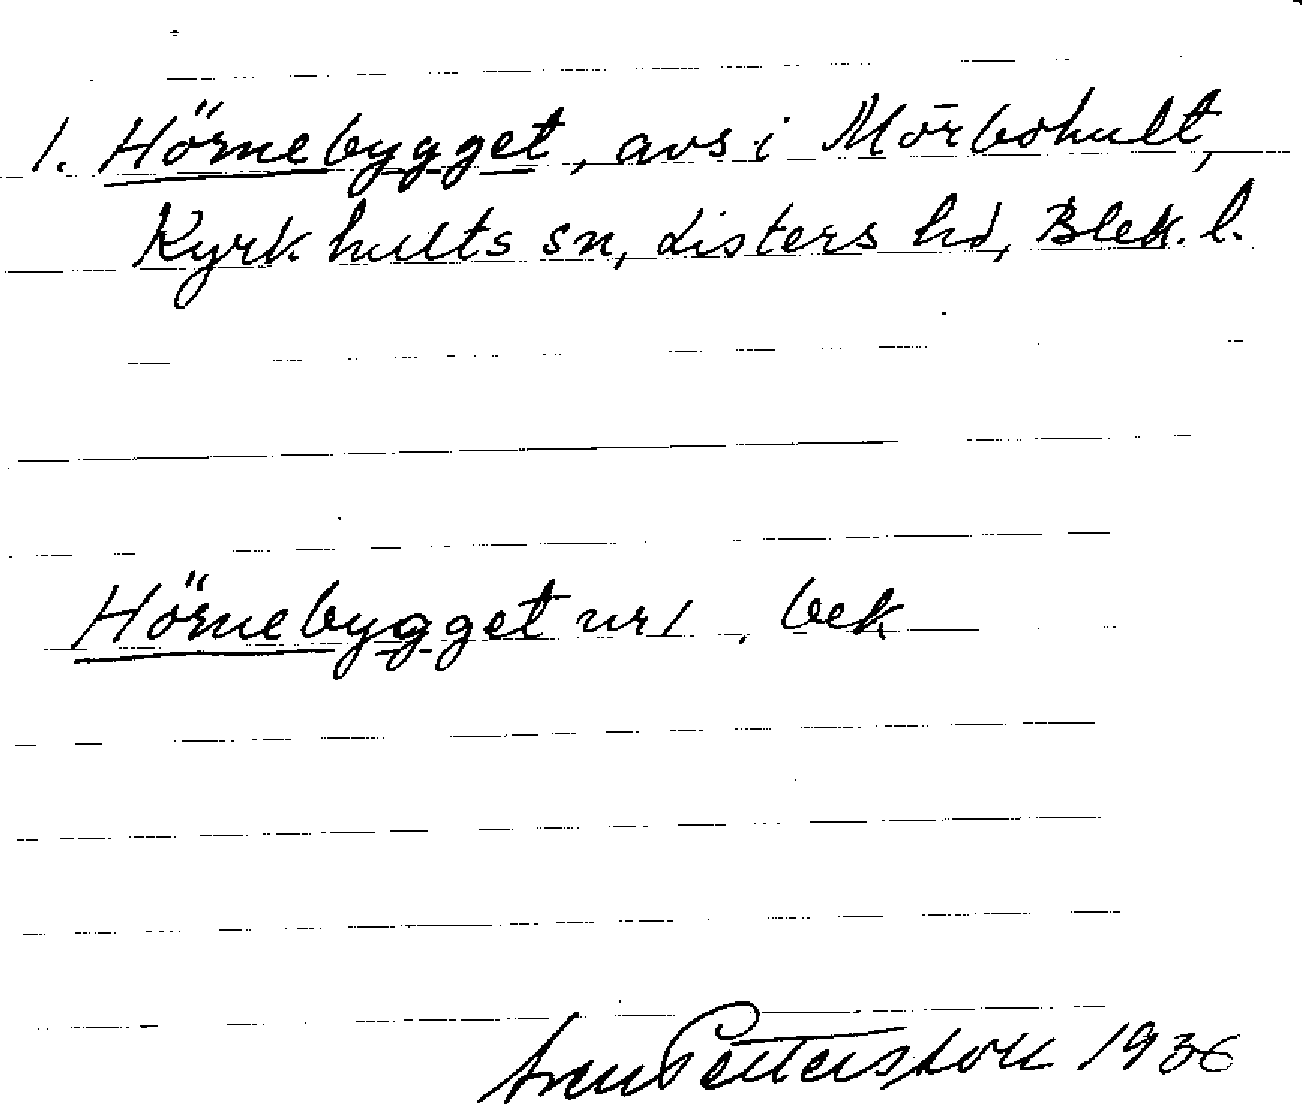 1. Hörnebygget, avs i Mörbohult,
Kyrkhults sn, Listers hd, Blek. l.
Hörnebygget nr 1, bek
Pettersson 1936